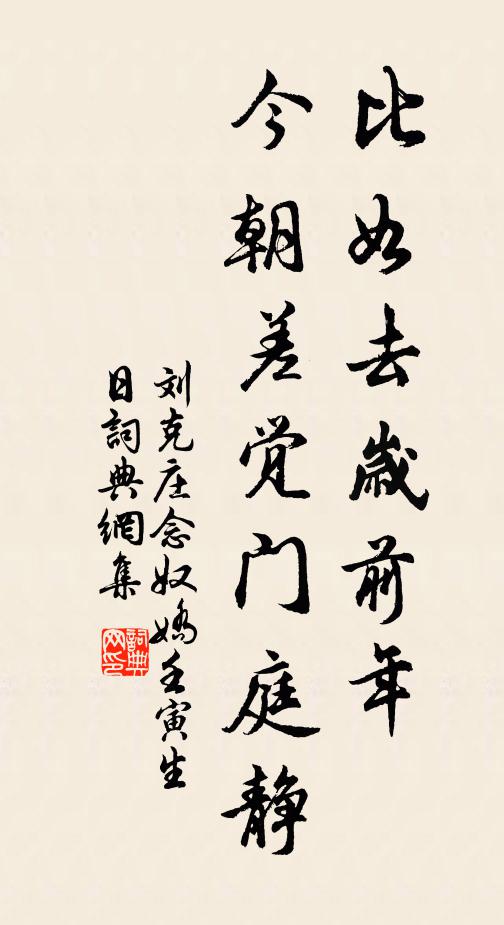 比如去歲前年
今朝差觉门庭静
刘克庄念奴嬌壬寅生
日詞典網集
詞典
网印